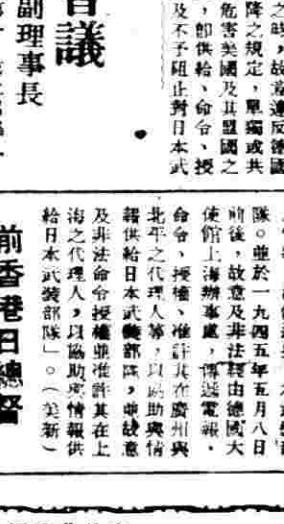 之時,故意違反德國
降之規定,單獨或共
危害美國及其盟國之
,卽供給、命令、授
及不予阻止對日本武
會議
副理事長
隊。並於一九四五年五月八日
前後,故意及非法經由德國大
使館上海辦事處,傳遞電報,
命令、授權、准許其在廣州與
北平之代理人等,以協助與情
報供給日本武裝部隊,並故意
及非法命令授權並准許其在上
海之代理人,以協助與情報供
給日本武裝部隊」。(美新)
前香港日總督